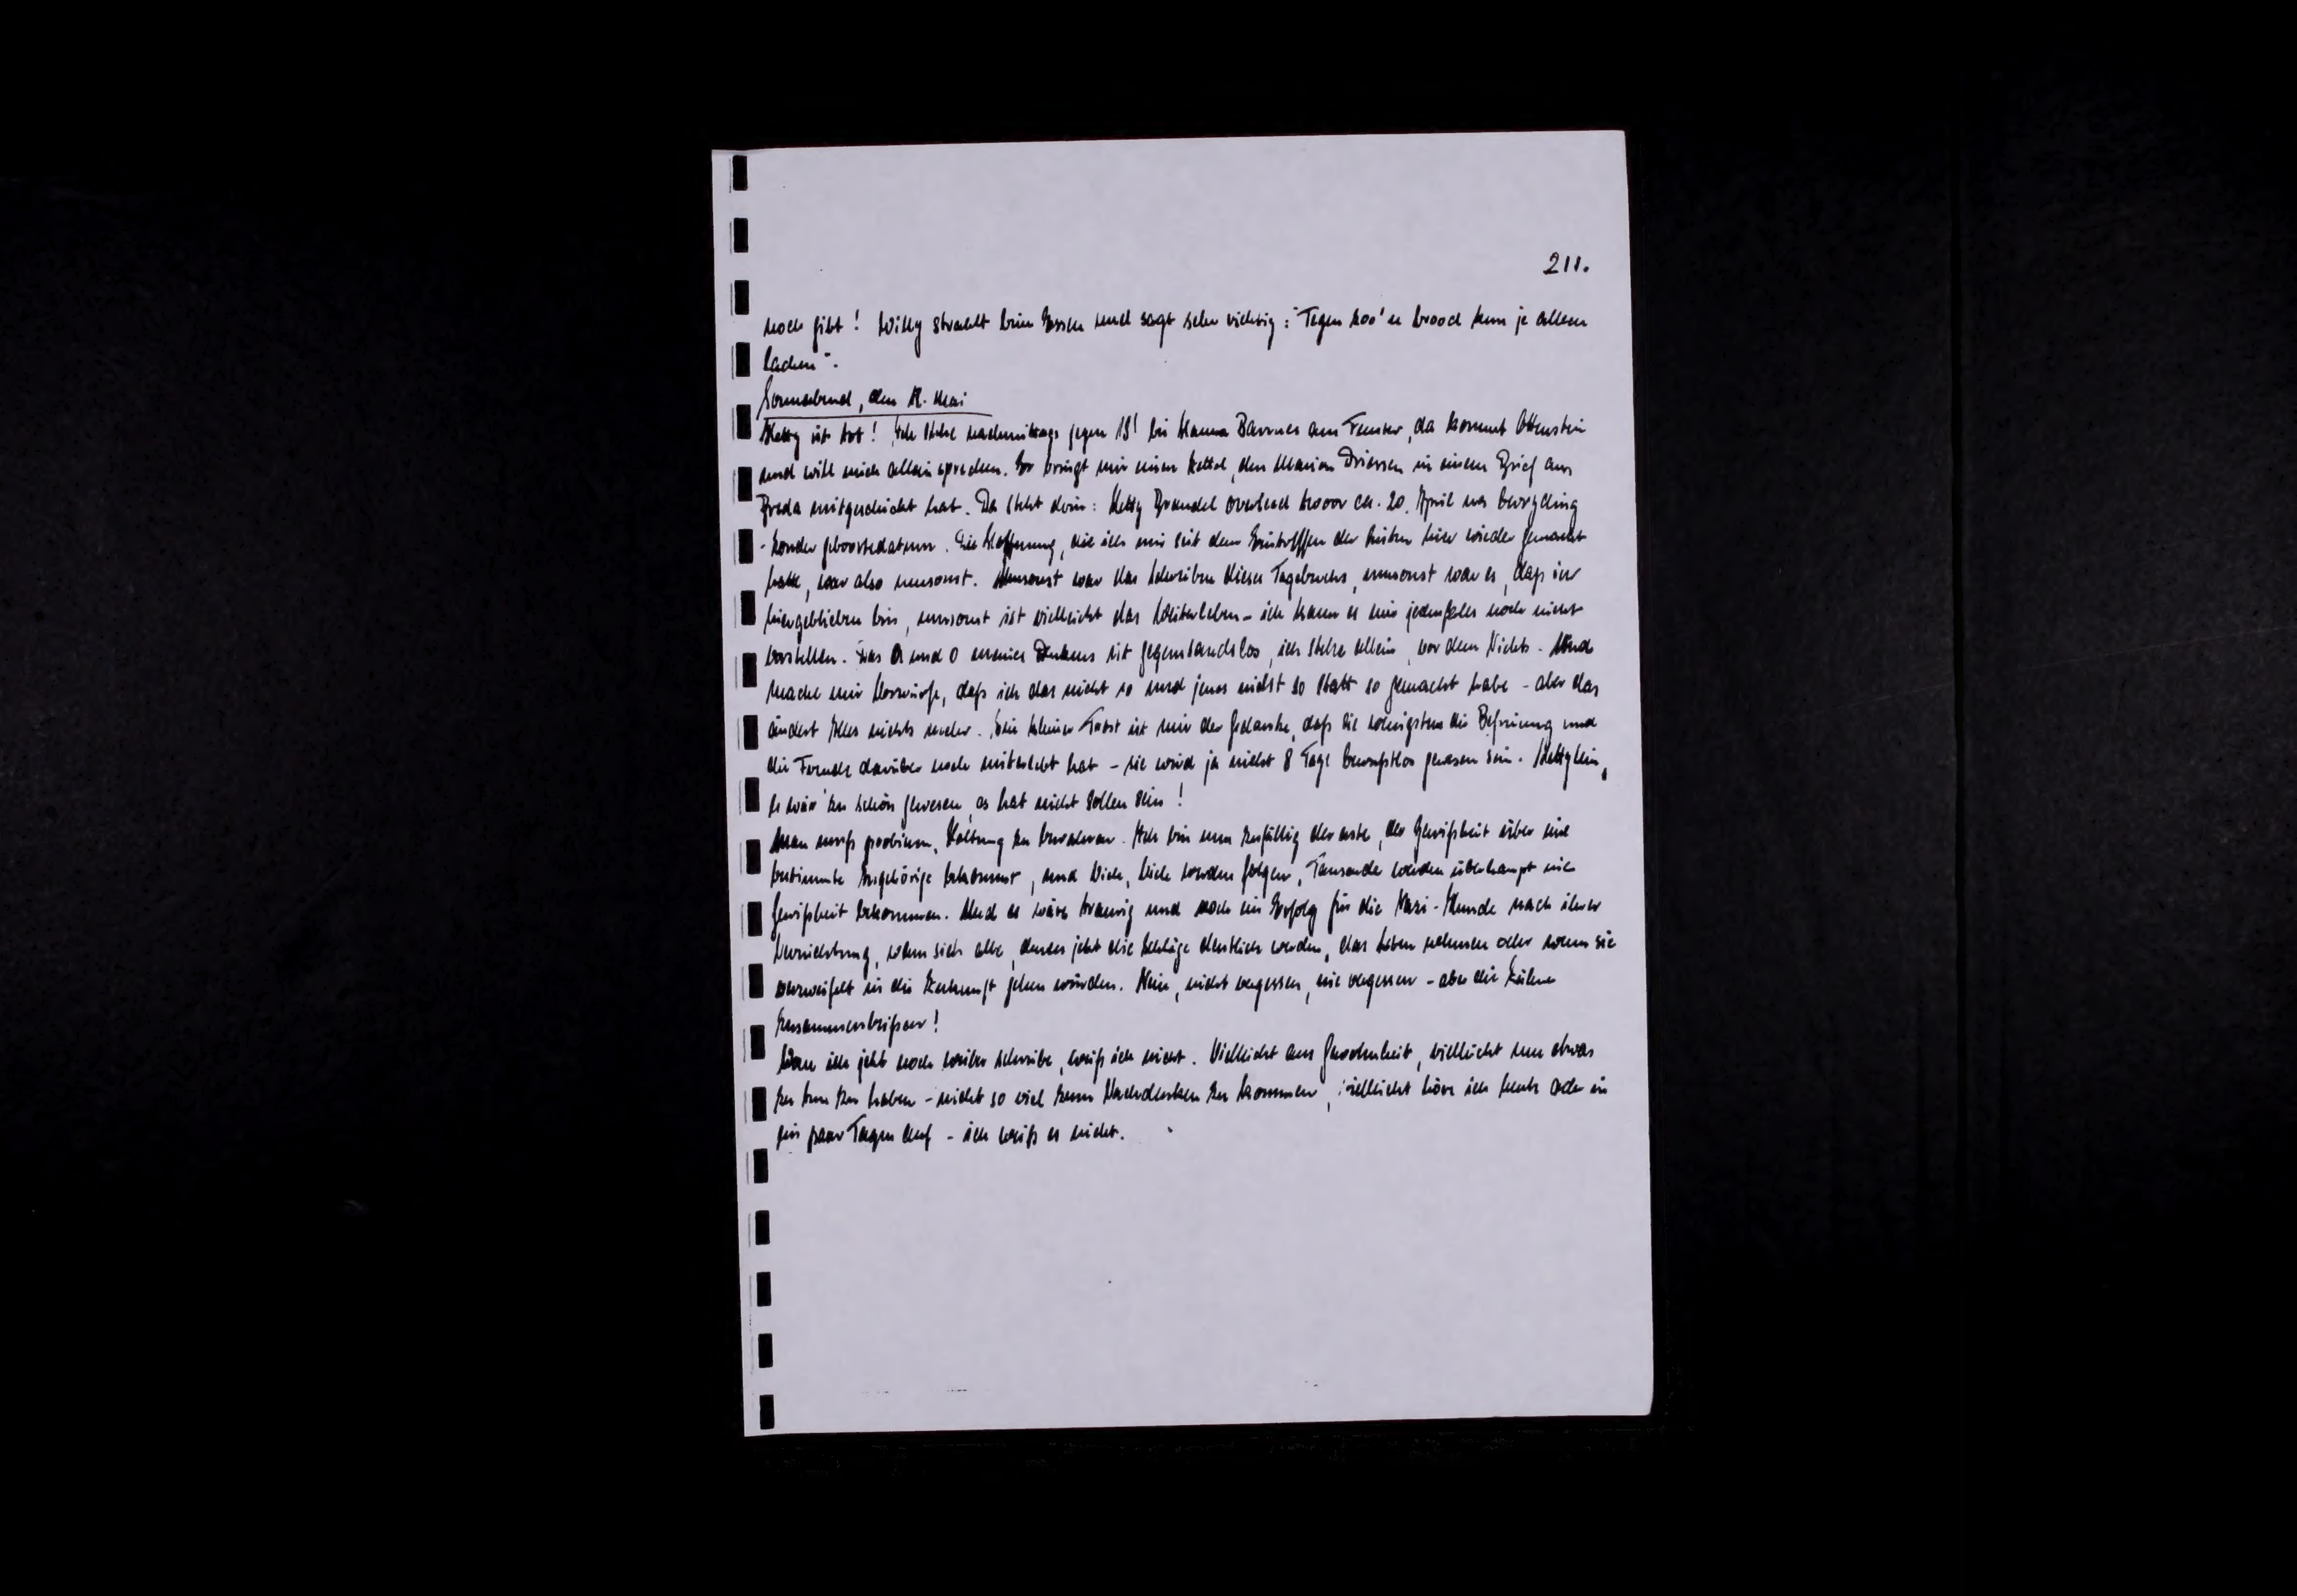 211.
noch gibt! Willy strahlt beim Essen und sagt sehr richtig: "Tegen zoo'n brood kun je alleen
lachen".
Sonnabend, den 12. Mai
Hetty ist tot! Ich stehe nachmittags gegen 19' bei Hanna Barmes am Fenster, da kommt Ottenstein
und will mich allein sprechen. Er bringt mir einen Zettel, den Marion Driessen in einem Brief aus
Breda mitgeschickt hat. Da steht drin: Hetty Brandel overleed troor ca. 20. April na bevryding
- zonder geboortedatum. Die Hoffnung, die ich mir seit dem Eintreffen der hier wieder gemacht
hatte, war also umsonst. Umsonst war das Schreiben dieses Tagebuchs, umsonst war es, daß ich
hiergeblieben bin, umsonst ist vielleicht das Weiterleben - ich kann es mir jedenfalls noch nicht
vorstellen. Das A und O meines Denkens ist gegenstandslos, ich stehe allein, vor dem Nichts. Und
mache mir Vorwürfe, daß ich das nicht so und jenes nicht so statt so gemacht habe - aber das
ändert Alles nichts mehr. Ein kleiner Trost ist mir der Gedanke, daß sie wenigstens die Befreiung und
die Freude darüber noch miterlebt hat - sie wird ja nicht 8 Tage bewußtlos gewesen sein. Hettylein,
es wär' zu schön gewesen, es hat nicht sollen sein!
Man muß probieren, Haltung zu bewahren. Ich bin nun zufällig der erste, der Gewißheit über eine
bestimmte Angehörige bekommt, und Viele, Viele werden folgen, Tausende werden überhaupt nie
Gewißheit bekommen. Und es wäre traurig und noch ein Erfolg für die Nazi-Hunde nach ihrer
Vernichtung, wenn sich alle, denen jetzt die Schläge deutlich werden, das Leben nehmen oder wenn sie
verzweifelt in die Zukunft sehen würden. Nein, nicht vergessen, nie vergessen - aber die Zähne
zusammenbeißen!
Wozu ich jetzt noch weiter schreibe, weiß ich nicht. Vielleicht aus Gewohnheit, vielleicht um etwas
zu tun zu haben - nicht so viel zum Nachdenken zu kommen, vielleicht höre ich heute oder in
ein paar Tagen auf - ich weiß es nicht.